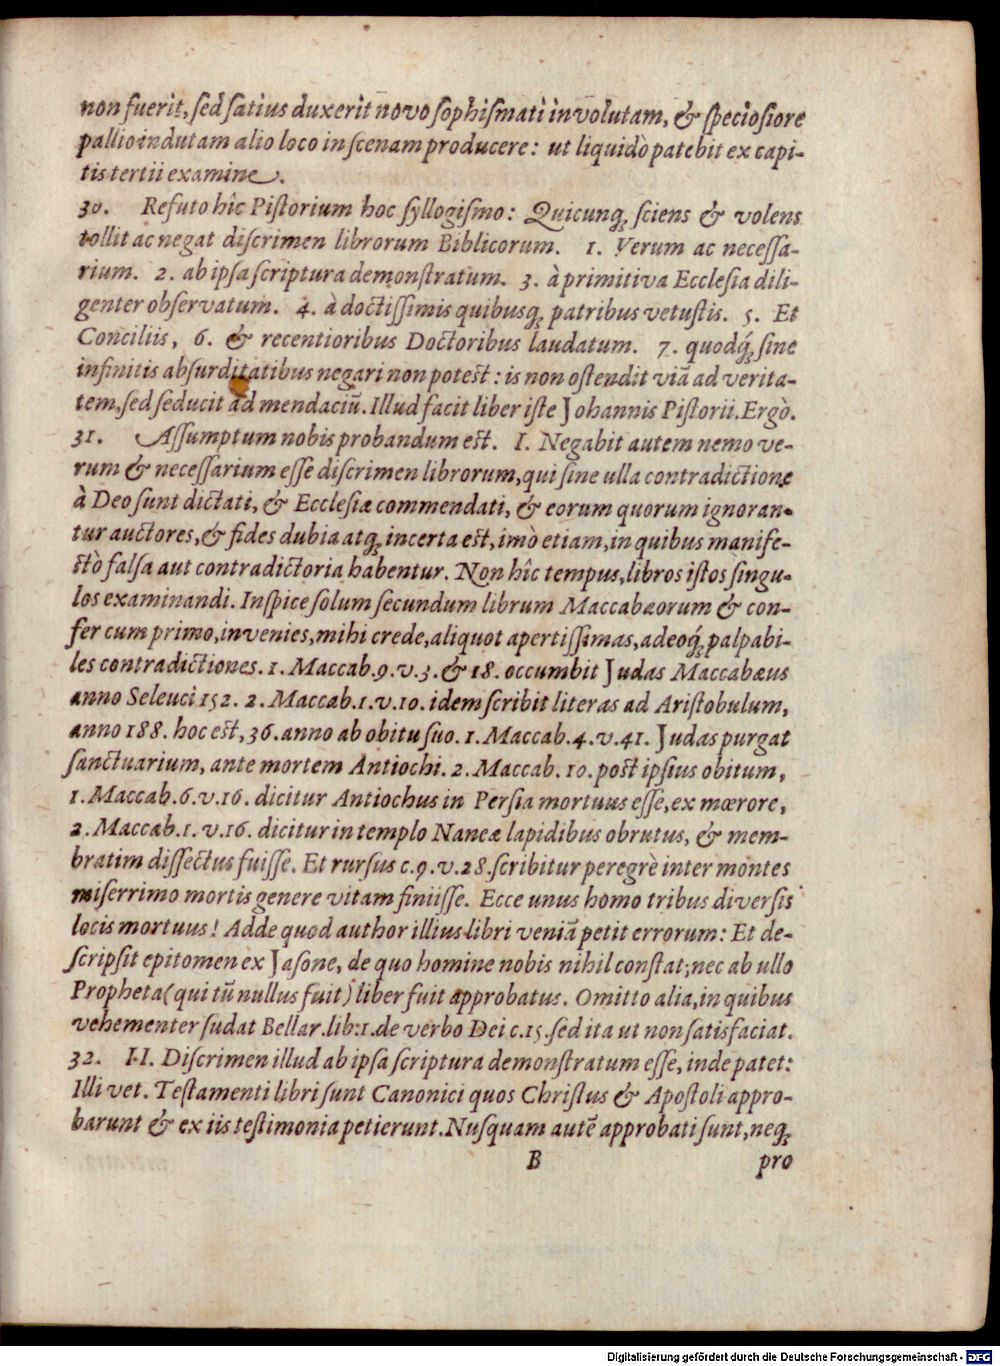 non fuerit, sed satius duxerit novo sophismati involutam, & speciosiore
pallio indutam alio loco in scenam producere: ut liquidò patebit ex capi-
tis tertii examine.
30. Refuto hîc Pistorium hoc syllogismo: Quicunq; sciens & volens
tollit ac negat discrimen librorum Biblicorum. 1. Verum ac necessa-
rium. 2. ab ipsa scriptura demonstratum. 3. à primitiva Ecclesia dili-
genter observatum. 4. à doctissimis quibusq; patribus vetustis. 5. Et
Conciliis, 6. & recentioribus Doctoribus laudatum. 7. quodq́; sine
infinitis absurditatibus negari non potest: is non ostendit viã ad verita-
tem, sed seducit ad mendaciũ. Illud facit liber iste Johannis Pistorii. Ergò.
31. Assumptum nobis probandum est. I. Negabit autem nemo ve-
rum & necessarium esse discrimen librorum, qui sine ulla contradictione
à Deo sunt dictati, & Ecclesiæ commendati, & eorum quorum ignoran-
tur auctores, & fides dubia atq; incerta est, imò etiam, in quibus manife-
stò falsa aut contradictoria habentur. Non hîc tempus, libros istos singu-
los examinandi. Inspice solum secundum librum Maccabæorum & con-
fer cum primo, invenies, mihi crede, aliquot apertissimas, adeoq́; palpabi-
les contradictiones. 1. Maccab. 9. v. 3. & 18. occumbit Judas Maccabæus
anno Seleuci 152. 2. Maccab. 1. v. 10. idem scribit literas ad Aristobulum,
anno 188. hoc est, 36. anno ab obitu suo. 1. Maccab. 4. v. 41. Judas purgat
sanctuarium, ante mortem Antiochi. 2. Maccab. 10. post ipsius obitum,
1. Maccab. 6. v. 16. dicitur Antiochus in Persia mortuus esse, ex mœrore,
2. Maccab. 1. v. 16. dicitur in templo Naneæ lapidibus obrutus, & mem-
bratim dissectus fuisse. Et rursus c. 9. v. 28. scribitur peregrè inter montes
miserrimo mortis genere vitam finiisse. Ecce unus homo tribus diversis
locis mortuus! Adde quod author illius libri veniã petit errorum: Et de-
scripsit epitomen ex Jasone, de quo homine nobis nihil constat; nec ab ullo
Propheta (qui tũ nullus fuit) liber fuit approbatus. Omitto alia, in quibus
vehementer sudat Bellar. lib: 1. de verbo Dei c. 15. sed ita ut non satisfaciat.
32. II. Discrimen illud ab ipsa scriptura demonstratum esse, inde patet:
Illi vet. Testamenti libri sunt Canonici quos Christus & Apostoli appro-
barunt & ex iis testimonia petierunt. Nusquam autẽ approbati sunt, neq;
B pro
Digitalisierung gefördert durch die Deutsche Forschungsgemeinschaft - DFG